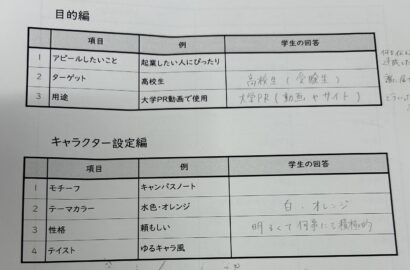 目的編
項目 例 学生の回答
1 アピールしたいこと 起業したい人にぴったり
2 ターゲット 高校生 高校生（受験生）
3 用途 大学PR動画で使用 大学PR（動画やサイト）
キャラクター設定編
項目 例 学生の回答
1 モチーフ キャンパスノート
2 テーマカラー 水色・オレンジ 白・オレンジ
3 性格 頼もしい 明るくて何事にも積極的
4 テイスト ゆるキャラ風